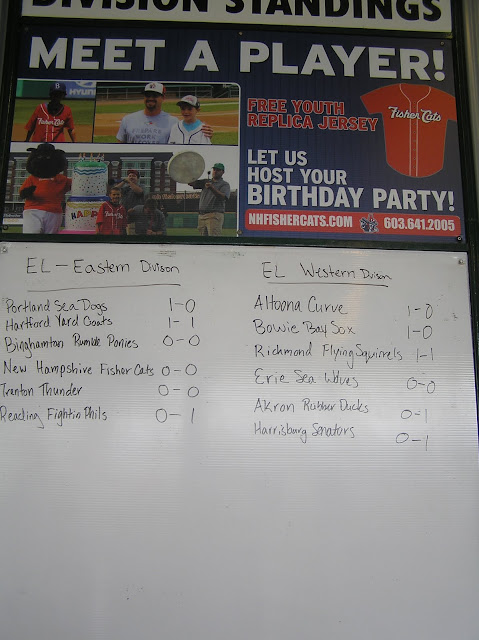 DIVISION STANDINGS
MEET A PLAYER!
FREE YOUTH
REPLICA JERSEY
Fisher Cats
LET US
HOST YOUR
BIRTHDAY PARTY!
NHFISHERCATS.COM 603.641.2005
HAPP
EL - Eastern Divison
Portland Sea Dogs 1-0
Hartford Yard Goats 1-1
Binghamton Rumble Ponies 0-0
New Hampshire Fisher Cats 0-0
Trenton Thunder 0-0
Reading Fightin Phils 0-1
EL Western Divison
Altoona Curve 1-0
Bowie Bay Sox 1-0
Richmond Flying Squirrels 1-1
Erie Sea Wolves 0-0
Akron Rubber Ducks 0-1
Harrisburg Senators 0-1